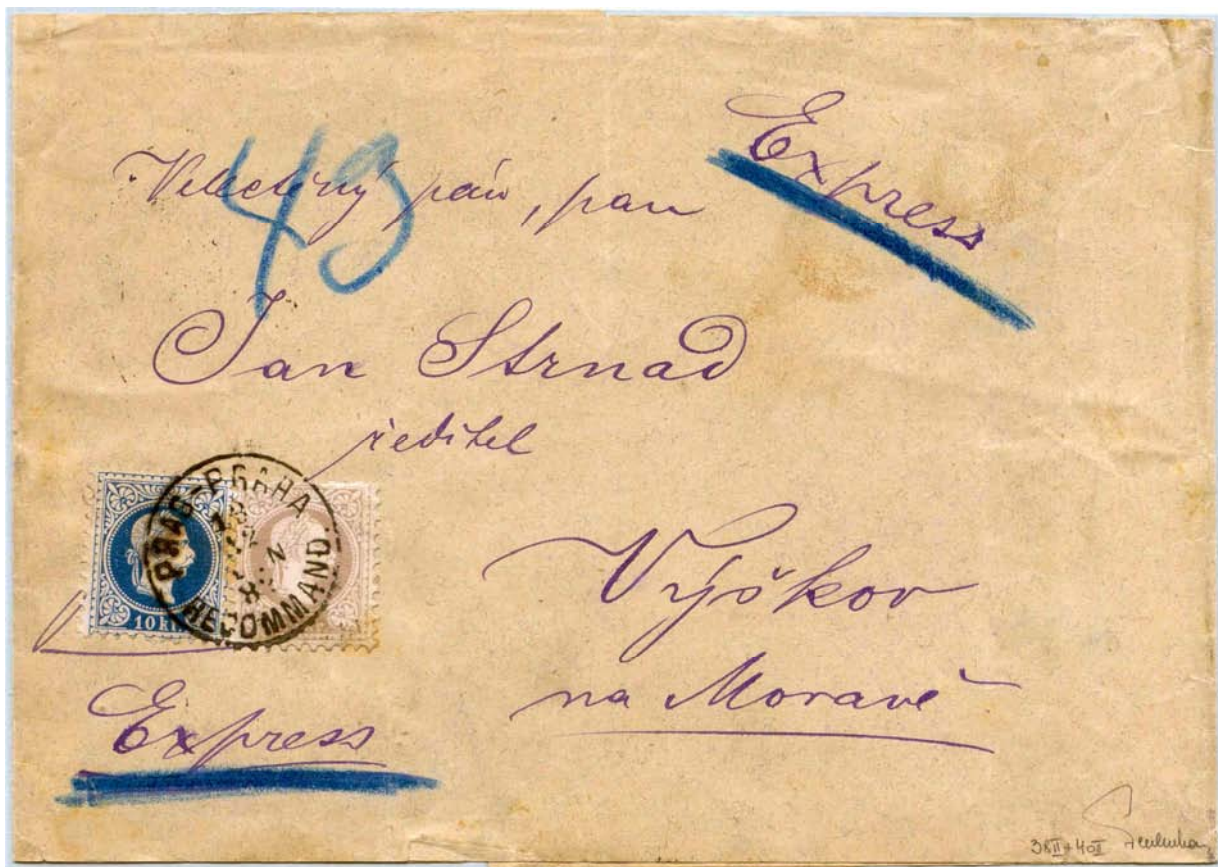 Express
49
Velectěný pán, pan
Jan Strnad
ředitel
PRAG-PRAHA
RECOMMAND.
10 kr.
Výškov
na Moravě
Express
38II+40I